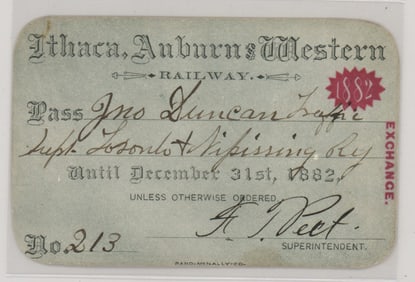 Ithaca, Auburn & Western
RAILWAY.
1882
Pass Jno Duncan Traffic
Supt. Toronto & Nipissing Ry
Until December 31st, 1882,
UNLESS OTHERWISE ORDERED.
EXCHANGE.
No. 213
SUPERINTENDENT.
RAND, McNALLY & CO.